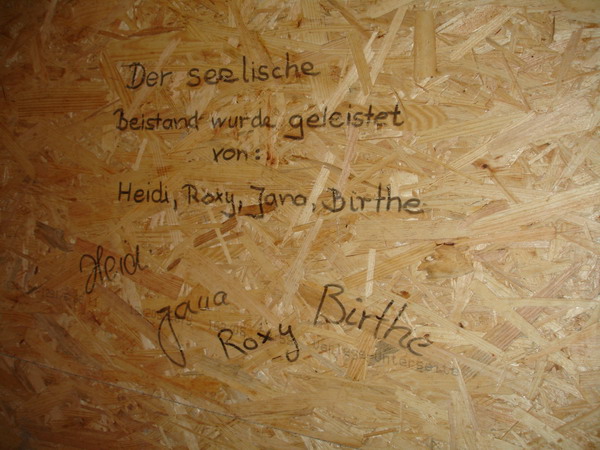 Der seelische
Beistand wurde geleistet
von:
Heidi, Roxy, Jana, Birthe
Heidi
Jana
Roxy
Birthe